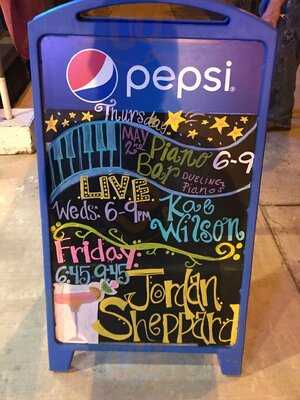 pepsi
Thursday
MAY 2nd Piano Bar 6-9
DUELING Pianos
LIVE
Weds. 6-9PM Kae Wilson
Friday
6:45 9:45 Jordan Sheppard